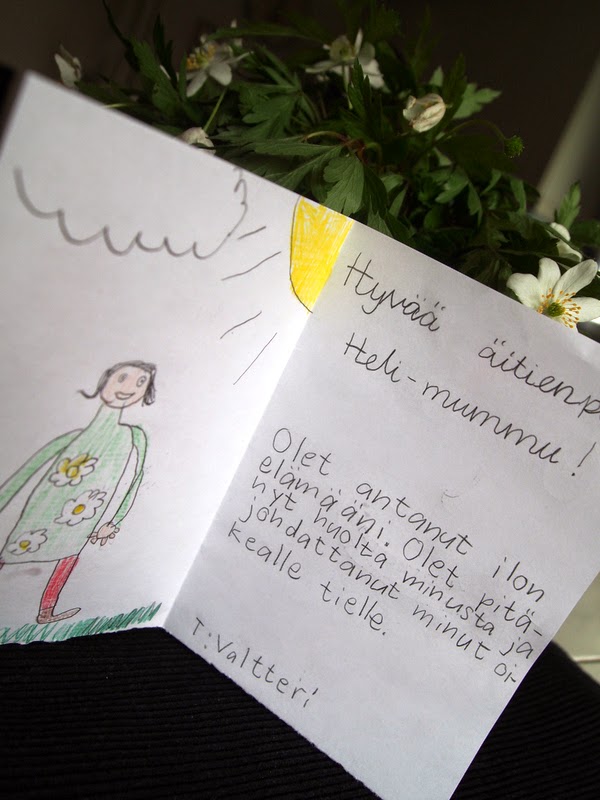 Hyvää äitienp
Heli-mummu!
Olet antanut ilon
elämääni. Olet pitä-
nyt huolta minusta ja
johdattanut minut oi-
kealle tielle.
T: Valtteri